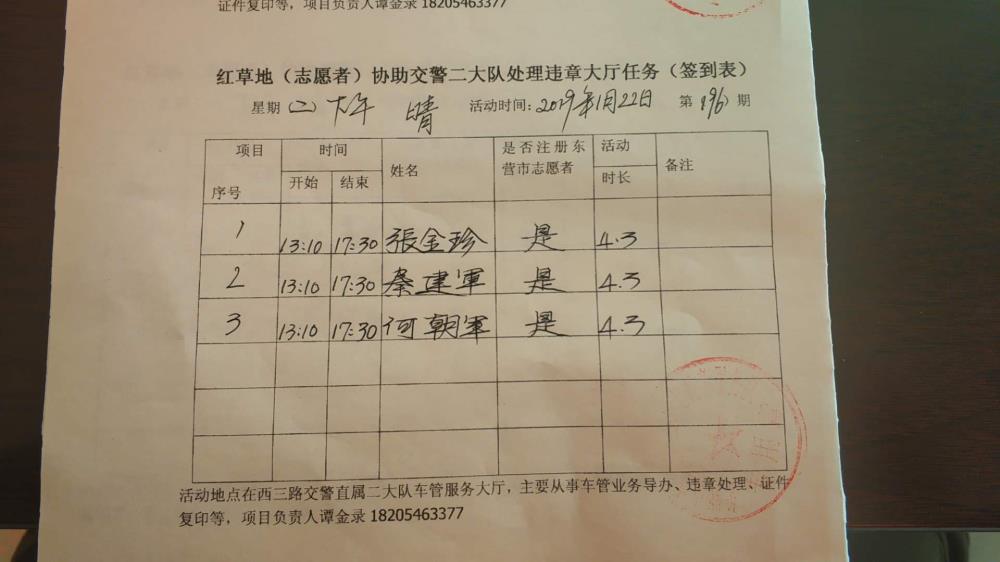 证件复印等，项目负责人谭金录 18205463377
红草地（志愿者）协助交警二大队处理违章大厅任务（签到表）
星期（二）下午 晴 活动时间：2019年1月22日 第196期
项目 时间 姓名 是否注册东 活动 备注
序号 开始 结束 营市志愿者 时长
1 13:10 17:30 張金珍 是 4.3
2 13:10 17:30 秦建軍 是 4.3
3 13:10 17:30 何朝軍 是 4.3
活动地点在西三路交警直属二大队车管服务大厅，主要从事车管业务导办、违章处理、证件
复印等，项目负责人谭金录 18205463377